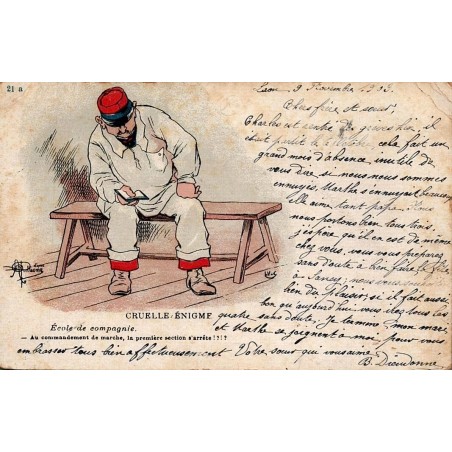 21 a
Laon 9 Novembre 1903.
Cher frère et sœur,
Charles est rentré de il
était parti le cela fait un
grand mois d'absence, inutile de
vous dire si nous nous sommes
ennuyés. Marthe s'ennuyait beaucoup
elle aime tant papa. Nous
nous portons bien tous trois,
j'espère qu'il en est de même
chez vous, vous vous préparez
sans doute à bien faire la fête
à nous vous souhaitons
bien du plaisir, s'il fait aussi
bon qu'aujourd'hui vous irez tous les
quatre sans doute. Je termine mon mari
et Marthe se joignent à moi, pour vous
embrasser tous bien affectueusement Votre sœur qui vous aime
B. Dieudonné
CRUELLE ÉNIGME
École de compagnie.
— Au commandement de marche, la première section s'arrête!?!?